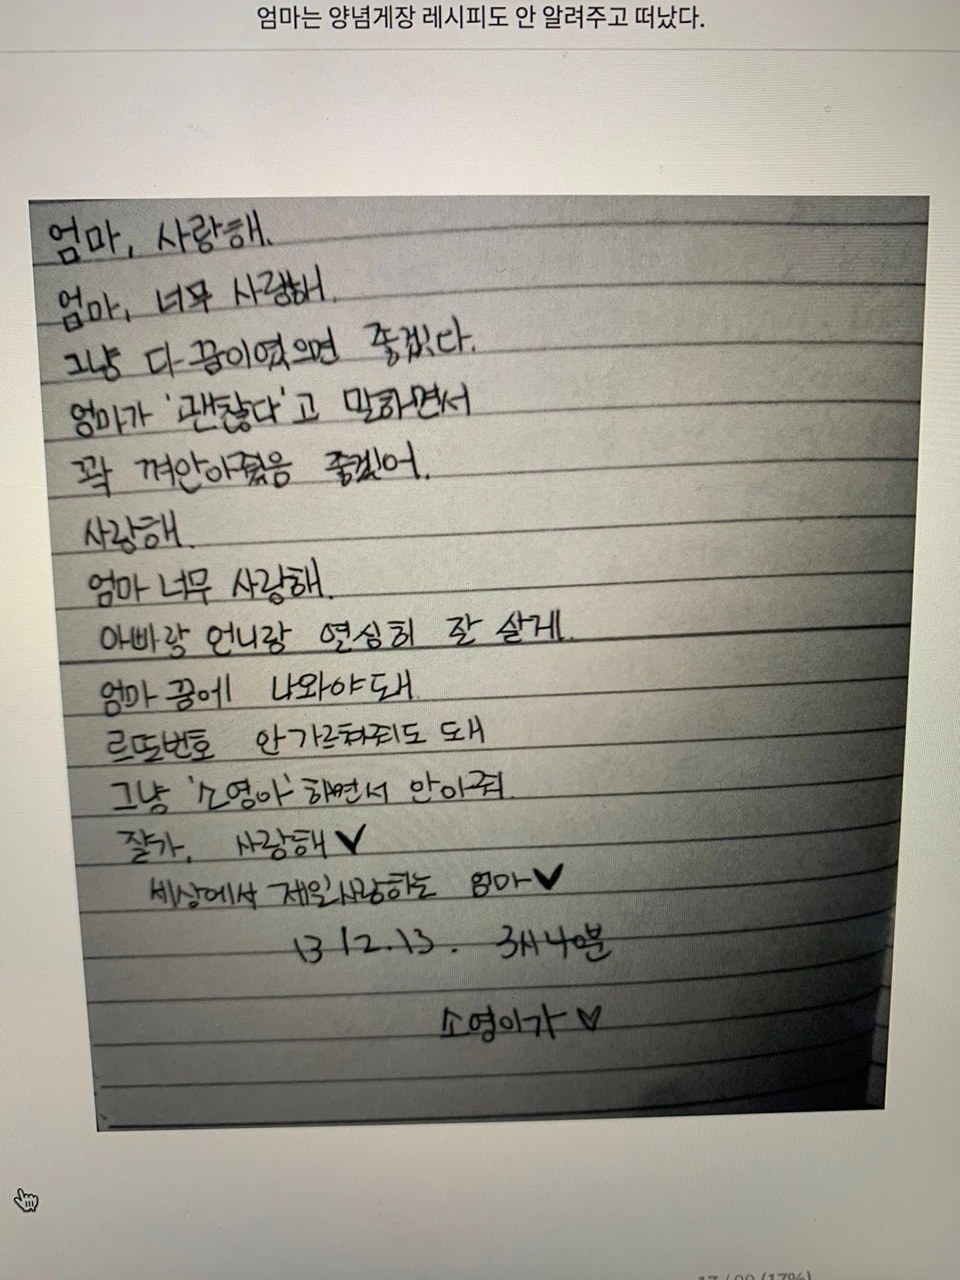 엄마는 양념게장 레시피도 안 알려주고 떠났다.
엄마, 사랑해.
엄마, 너무 사랑해.
그냥 다 꿈이였으면 좋겠다.
엄마가 '괜찮다'고 말하면서
꽉 껴안아줬음 좋겠어.
사랑해.
엄마 너무 사랑해.
아빠랑 언니랑 열심히 잘 살게.
엄마 꿈에 나와야 돼
르또번호 안 가르쳐줘도 돼
그냥 '소영아' 하면서 안아줘.
잘가, 사랑해 ♥
세상에서 제일 사랑하는 엄마♥
13 12.13. 3시 40분
소영이가 ♡
(17%)